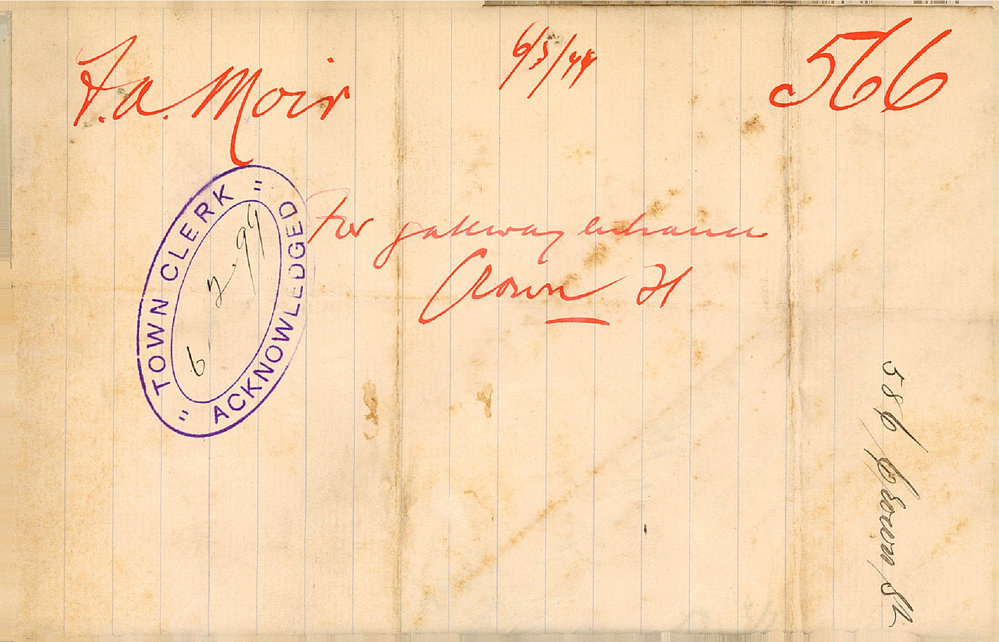 F. A. Moir
6/3/99
566
TOWN CLERK
ACKNOWLEDGED
6 2.99
For gateway entrance
Crown St
586 Crown St